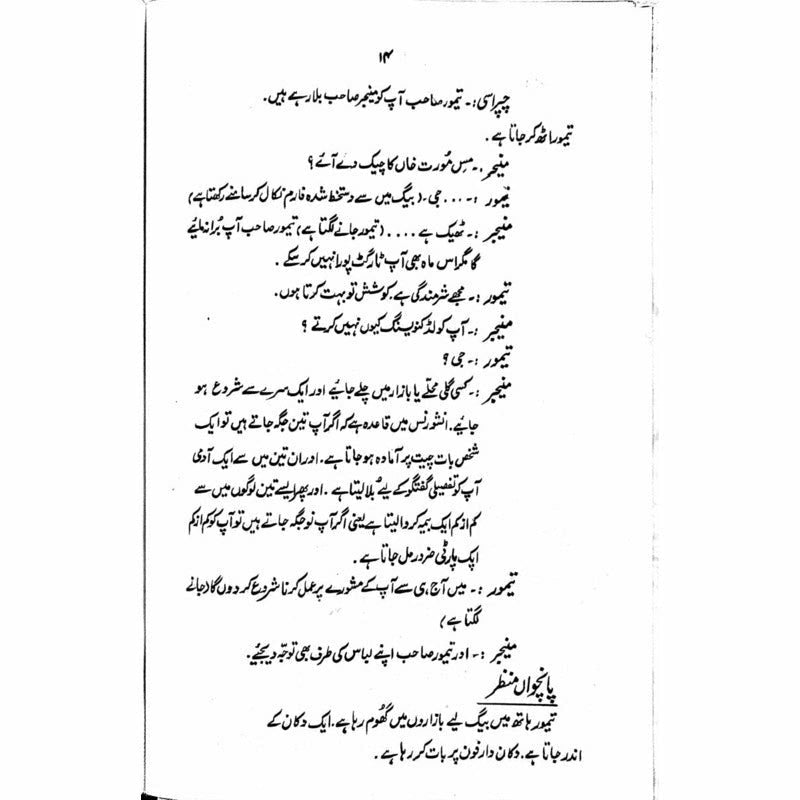 ۱۴
چپراسی:۔ تیمور صاحب آپ کو منیجر صاحب بلا رہے ہیں۔
تیمور اٹھ کر جاتا ہے۔
منیجر:۔ مس مُورت خاں کا چیک دے آئے؟
تیمور:۔ ... جی۔ (بیگ میں سے دستخط شدہ فارم نکال کر سامنے رکھتا ہے)
منیجر:۔ ٹھیک ہے .... (تیمور جانے لگتا ہے) تیمور صاحب آپ بُرا نہ مانیے
گا مگر اس ماہ بھی آپ ٹارگٹ پورا نہیں کر سکے۔
تیمور:۔ مجھے شرمندگی ہے۔ کوشش تو بہت کرتا ہوں۔
منیجر:۔ آپ کولڈ کنویسنگ کیوں نہیں کرتے؟
تیمور:۔ جی؟
منیجر:۔ کسی گلی محلّے یا بازار میں چلے جائیے اور ایک سرے سے شروع ہو
جائیے۔ انشورنس میں قاعدہ ہے کہ اگر آپ تین جگہ جاتے ہیں تو ایک
شخص بات چیت پر آمادہ ہو جاتا ہے۔ اور ان تین میں سے ایک آدمی
آپ کو تفصیلی گفتگو کے لیے بلا لیتا ہے۔ اور پھر ایسے تین لوگوں میں سے
کم از کم ایک بیمہ کروا لیتا ہے یعنی اگر آپ نو جگہ جاتے ہیں تو آپ کو کم از کم
ایک پارٹی ضرور مل جاتا ہے۔
تیمور:۔ میں آج ہی سے آپ کے مشورے پر عمل کرنا شروع کر دوں گا (جانے
لگتا ہے)
منیجر:۔ اور تیمور صاحب اپنے لباس کی طرف بھی توجّہ دیجئیے۔
پانچواں منظر
تیمور ہاتھ میں بیگ لیے بازاروں میں گھُوم رہا ہے۔ ایک دکان کے
اندر جاتا ہے۔ دکان دار فون پر بات کر رہا ہے۔